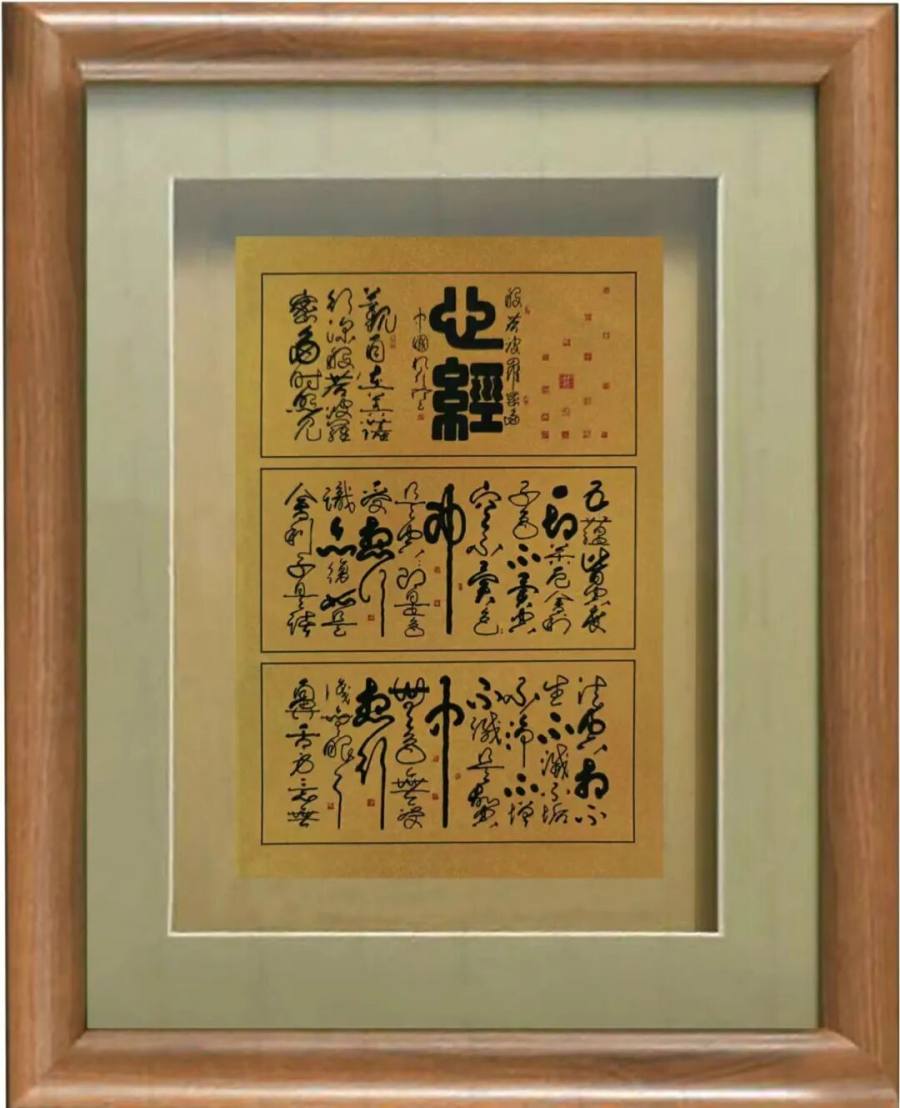 般若波羅蜜多
心經
中國
觀自在菩薩
行深般若波羅
蜜多時照見
五蘊皆空度
一切苦厄舍利
子色不異空
空不異色〻
即
是空〻即是色
受想行
識亦復如是
舍利子是諸
法空相不
生不滅不垢
不淨不增
不減是故空
中
無色無受
想行
識無眼耳
鼻舌身意無